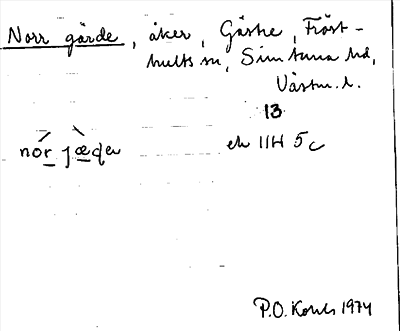 Norr gärde, åker, Gåshe, Fröst-
hults sn, Simtuna hd,
Västm. l.
13
nór jæ̀de
ek 11H 5c
P.O. Kouls 1974